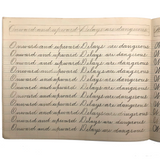 Onward and upward. Delays are dangerous.
Onward and upward. Delays are dangerous.
Onward and upward. Delays are dangerous.
Onward and upward. Delays are dangerous.
Onward and upward. Delays are dangerous.
Onward and upward. Delays are dangerous.
Onward and upward. Delays are dangerous.
Onward and upward. Delays are dangerous.
Onward and upward. Delays are dangerous.
Onward and upward. Delays are dangerous.